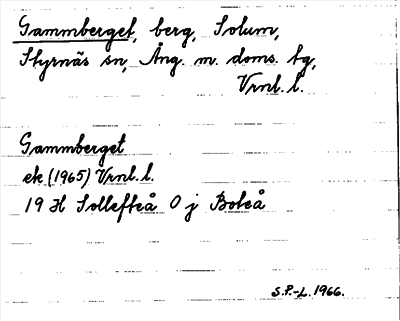 Gammberget, berg, Solum,
Styrnäs sn, Ång. m. doms. tg,
Vrnl. l.
Gammberget
ek (1965) Vrnl. l.
19 H Sollefteå 0 j Boteå
S.P.-L. 1966.